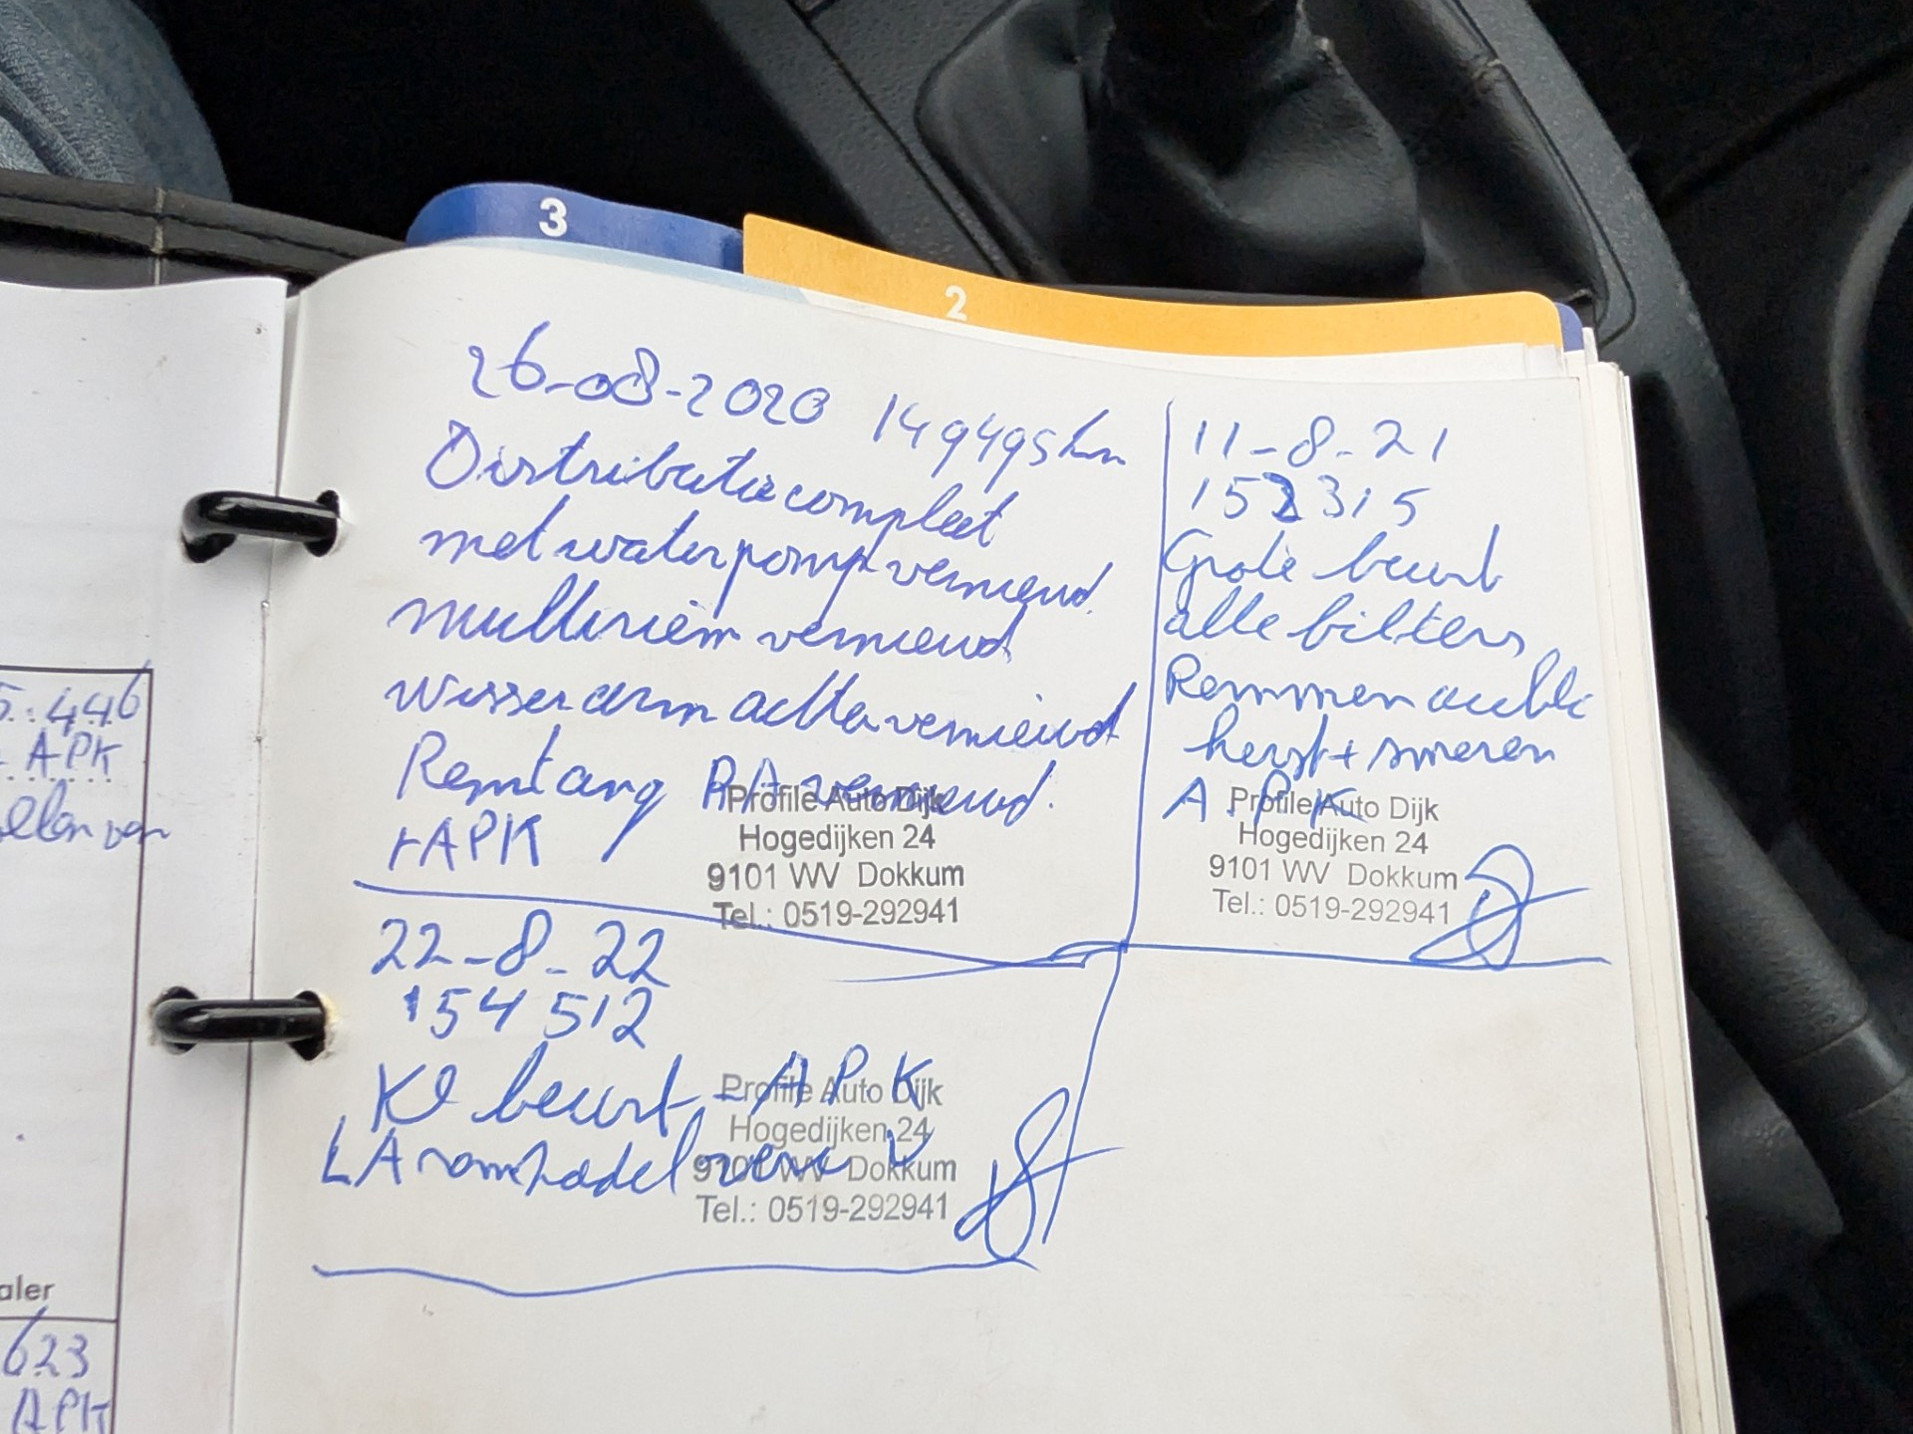 3
2
26-08-2020 149495km
Distributie compleet
met waterpomp vernieuwd.
multiriem vernieuwd
wisserarm achter vernieuwd
Remtang RA vernieuwd.
+APK
Profile Auto Dijk
Hogedijken 24
9101 WV Dokkum
Tel.: 0519-292941
11-8-21
152315
Grote beurt
alle filters
Remmen achter
+ smeren
A.P.K
Profile Auto Dijk
Hogedijken 24
9101 WV Dokkum
Tel.: 0519-292941
22-8-22
154512
Kl beurt - APK
LA
Profile Auto Dijk
Hogedijken 24
9101 WV Dokkum
Tel.: 0519-292941
5.446
APK
aler
623
APK